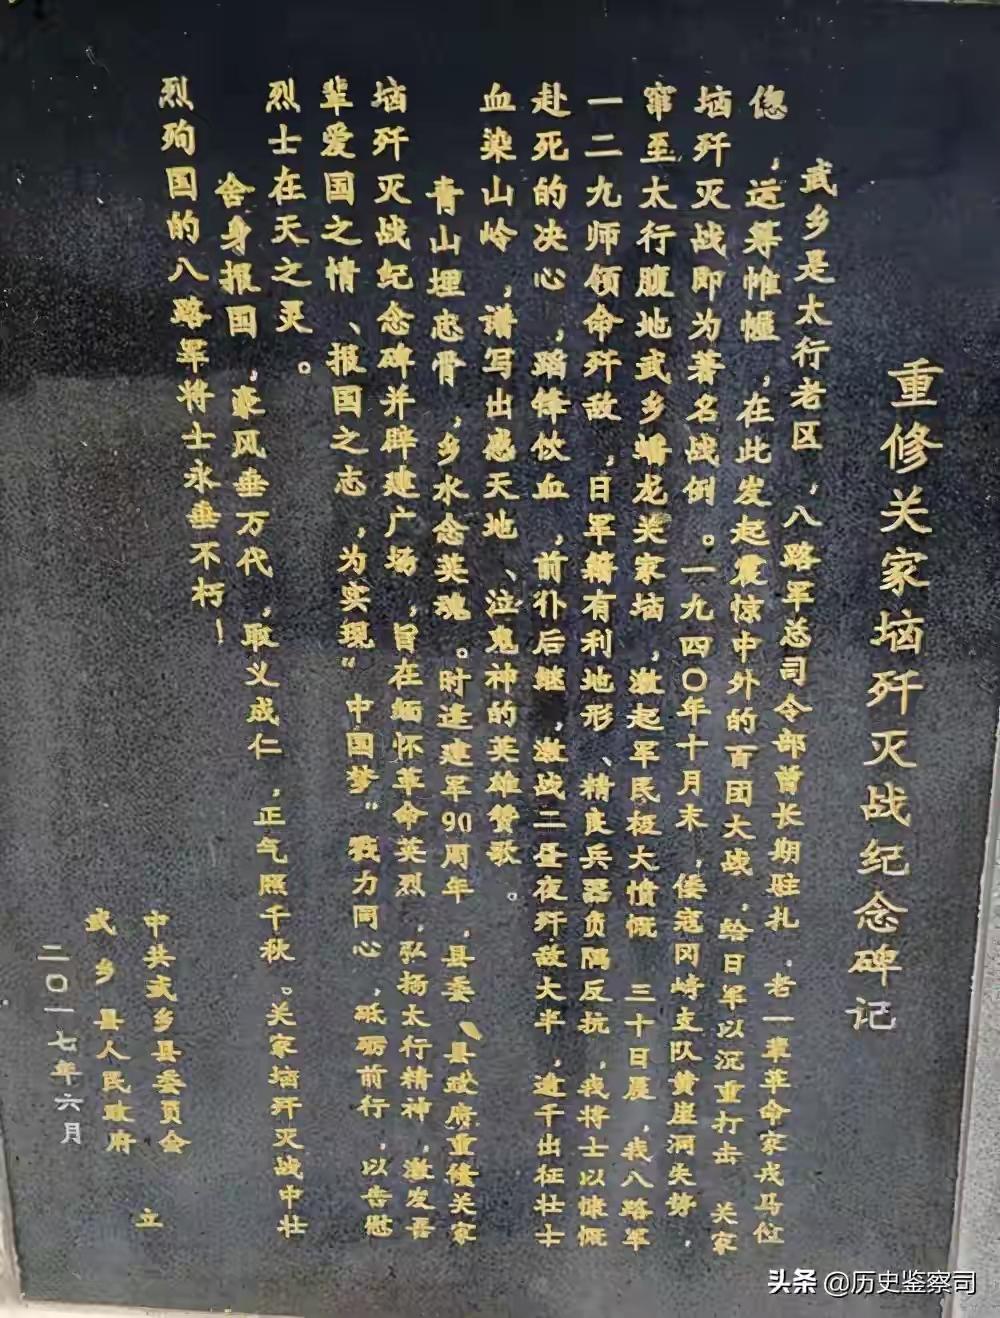 重修关家垴歼灭战纪念碑记
武乡是太行老区，八路军总司令部曾长期驻扎，老一辈革命家戎马倥
偬，运筹帷幄，在此发起震惊中外的百团大战，给日军以沉重打击 关家
垴歼灭战即为著名战例。一九四〇年十月末，倭寇冈崎支队黄崖洞失势，
窜至太行腹地武乡蟠龙关家垴，激起军民极大愤慨 三十日晨，我八路军
一二九师领命歼敌，日军籍有利地形、精良兵器负隅反抗，我将士以慷慨
赴死的决心，蹈锋饮血，前仆后继，激战二昼夜歼敌大半，逾千出征壮士
血染山岭，谱写出感天地、泣鬼神的英雄赞歌。
青山埋忠骨，乡水念英魂。时逢建军90周年，县委、县政府重修关家
垴歼灭战纪念碑并辟建广场，旨在缅怀革命英烈，弘扬太行精神，激发吾
辈爱国之情、报国之志，为实现"中国梦"戮力同心，砥砺前行，以告慰
烈士在天之灵。
舍身报国，豪风垂万代，取义成仁，正气照千秋。关家垴歼灭战中壮
烈殉国的八路军将士永垂不朽！
中共武乡县委员会
武乡县人民政府
立
二〇一七年六月
头条 @历史鉴察司